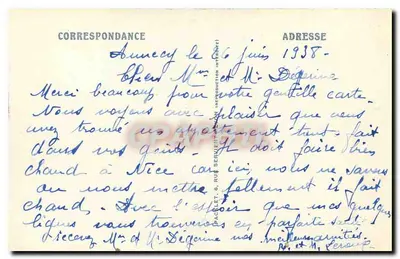 CORRESPONDANCE
ADRESSE
Annecy le 26 juin 1938 -
Chers Mme et Mr Degerine
Merci beaucoup pour votre gentille carte.
Nous voyons avec plaisir que vous
avez trouvé un appartement tout-fait
dans vos goûts. Il doit faire bien
chaud à Nice car ici, nous ne savons
ou nous mettre tellement il fait
chaud. Avec l'espoir que mes quelques
lignes vous trouverons en parfaite santé
recevez Mme et Mr Degerine nos meilleures amitiés.
Mr et Me